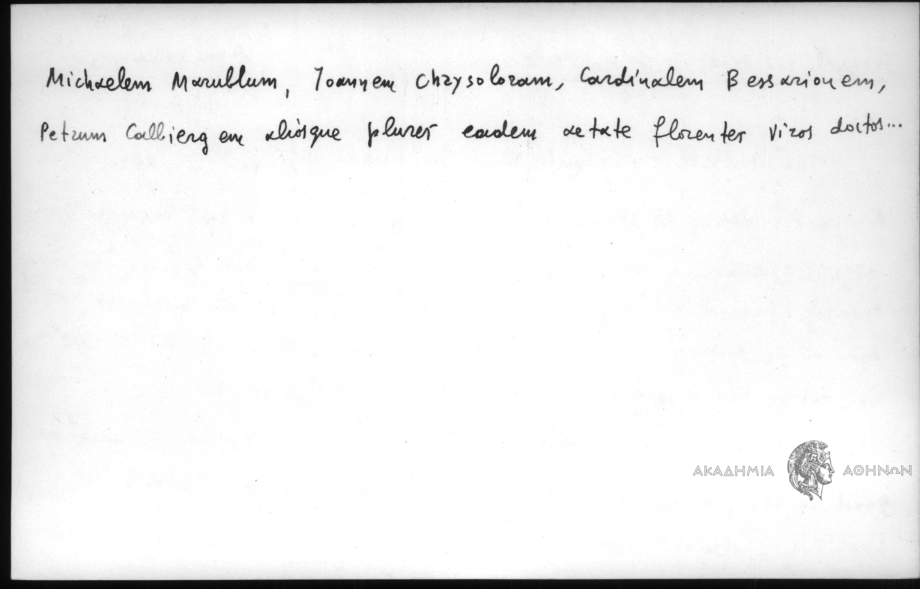 Michaelem Marullum, Ioannem Chrysoloram, Cardinalem Bessarionem,
Petrum Calliergem aliosque plures eadem aetate florentes viros doctos...
ΑΚΑΔΗΜΙΑ ΑΘΗΝΩΝ